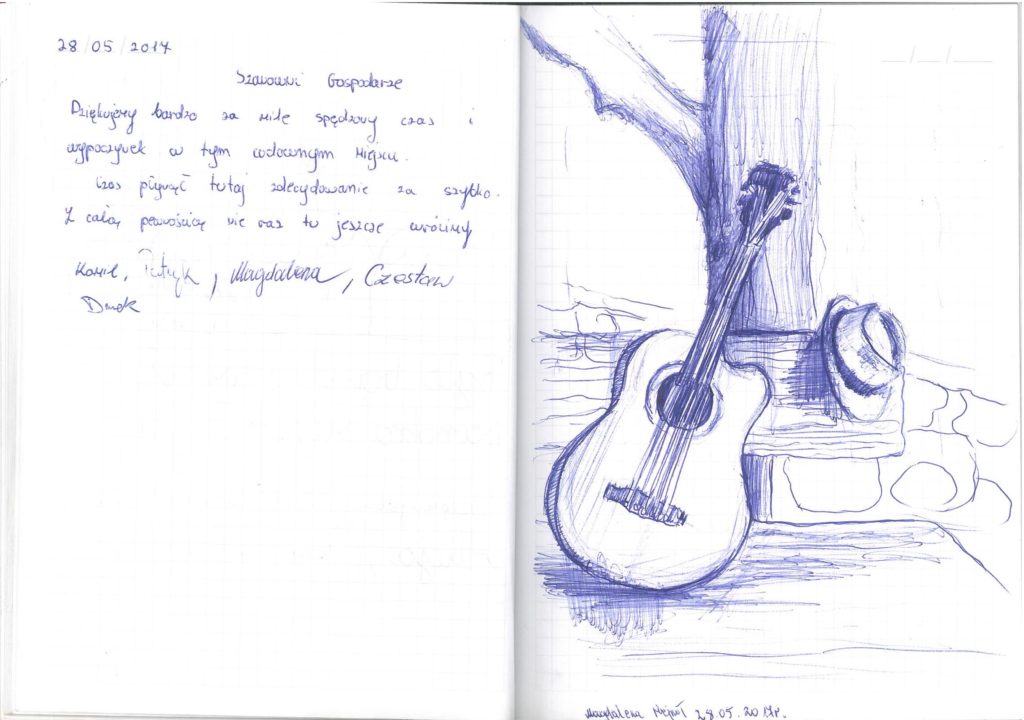 28/05/2017
Szanowni Gospodarze
Dziękujemy bardzo za miłe spędzony czas i
wypoczynek w tym cudownym miejscu.
Czas płynęć tutaj zdecydowanie za szytko.
Z całą pewnością nie raz tu jeszcze wrócimy
Kamil, Patryk, Magdalena, Czesław
Magdalena 28.05.2017r.